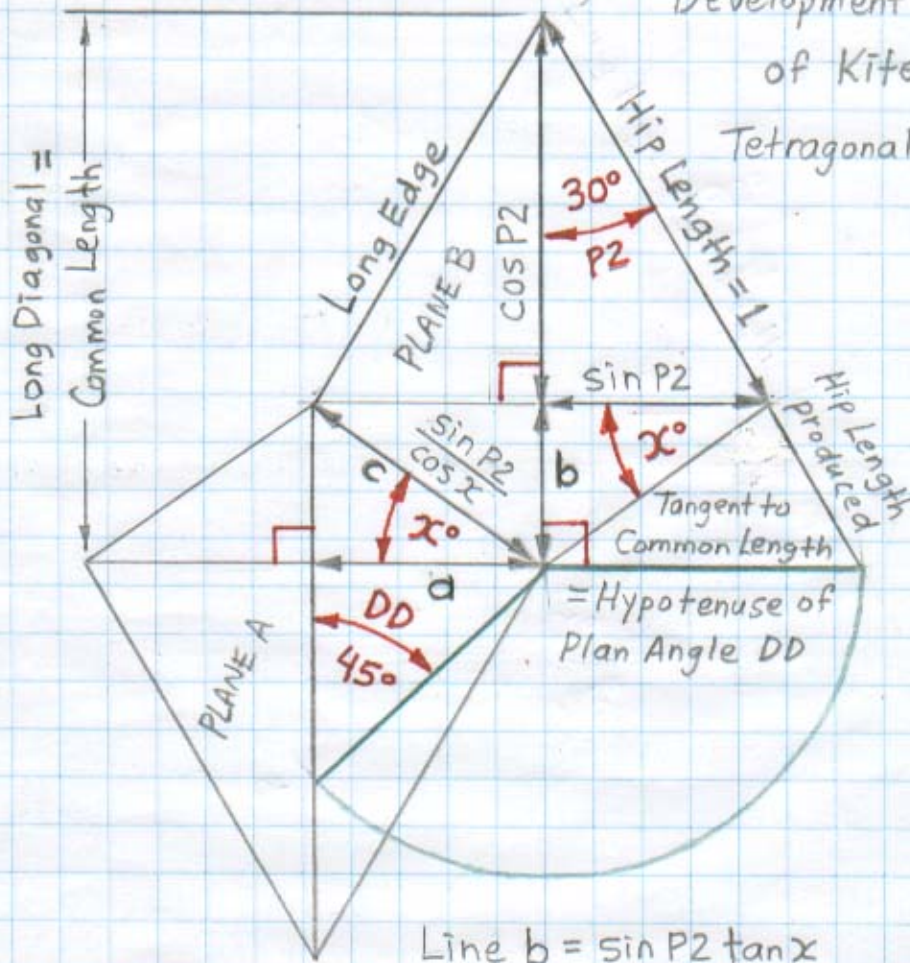 Development
of Kite
Tetragonal
Long Diagonal =
Common Length
Long Edge
Hip Length = 1
30°
P2
PLANE B
cos P2
sin P2
Hip Length
produced
sin P2
cos x
c
b
x°
x°
Tangent to
Common Length
a
= Hypotenuse of
Plan Angle DD
DD
45°
PLANE A
Line b = sin P2 tan x